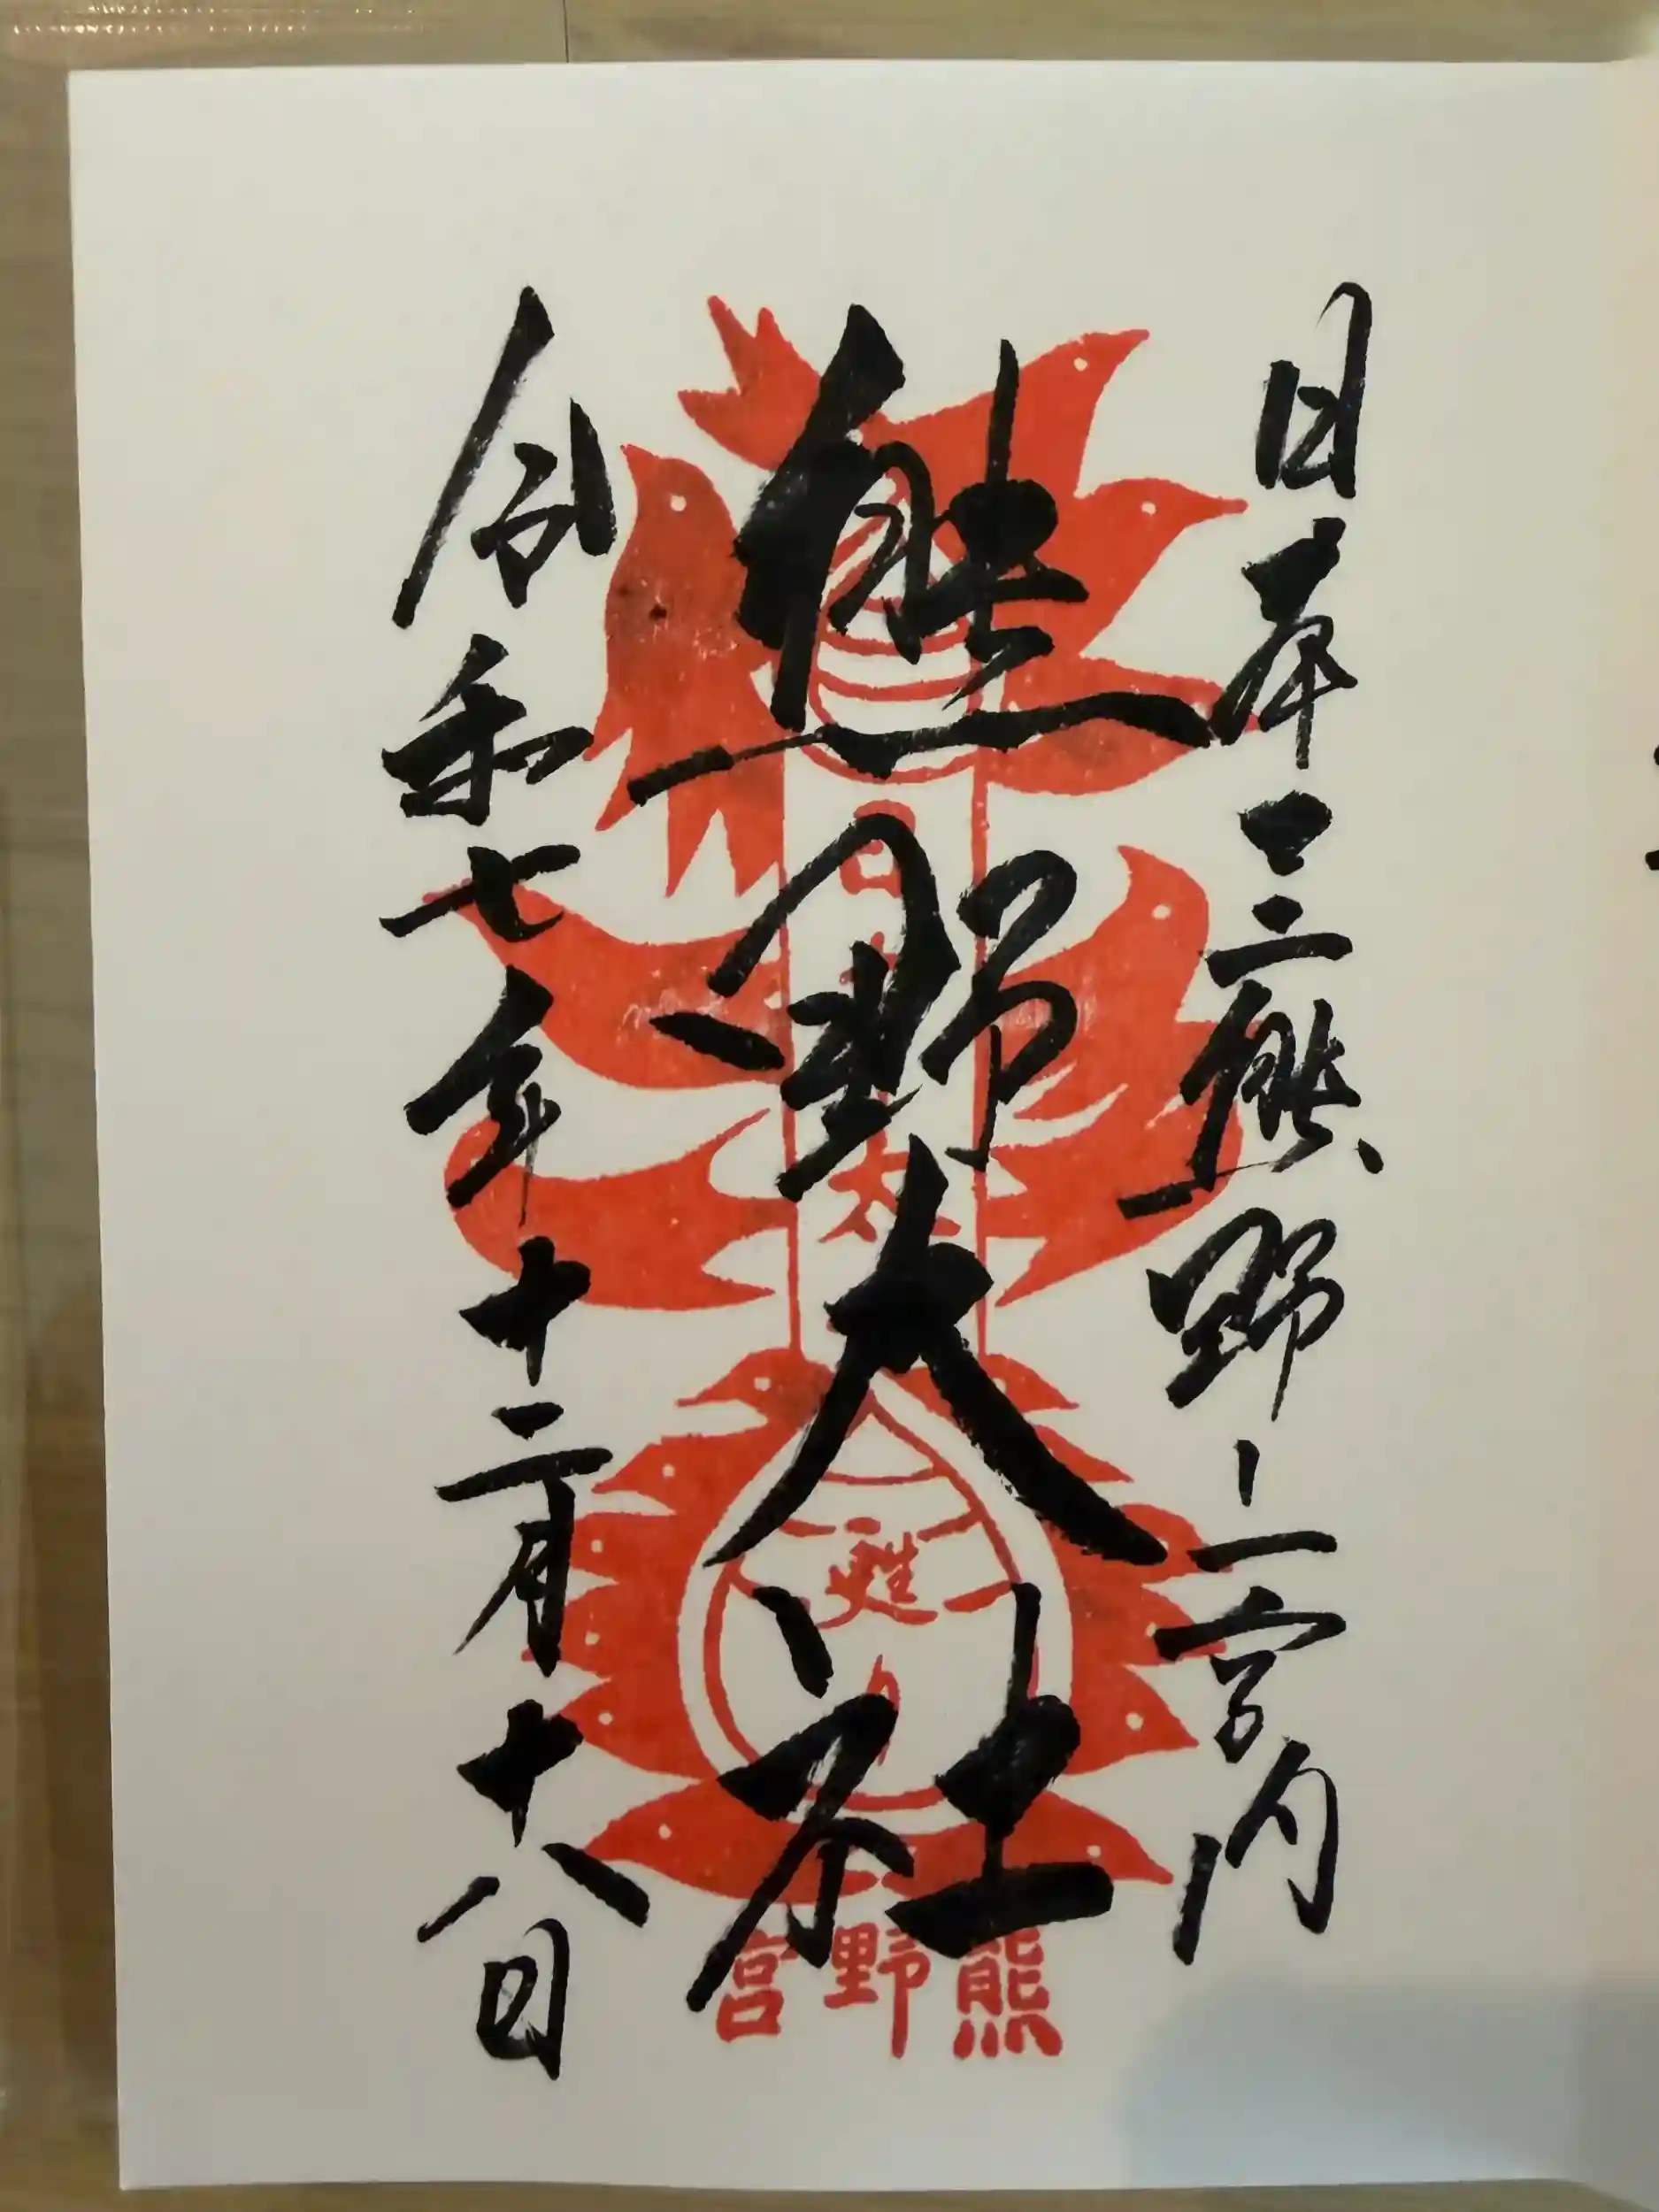 日本三熊野ノ一宮内
熊野大社
令和七年十二月十八日
甦
熊野宮